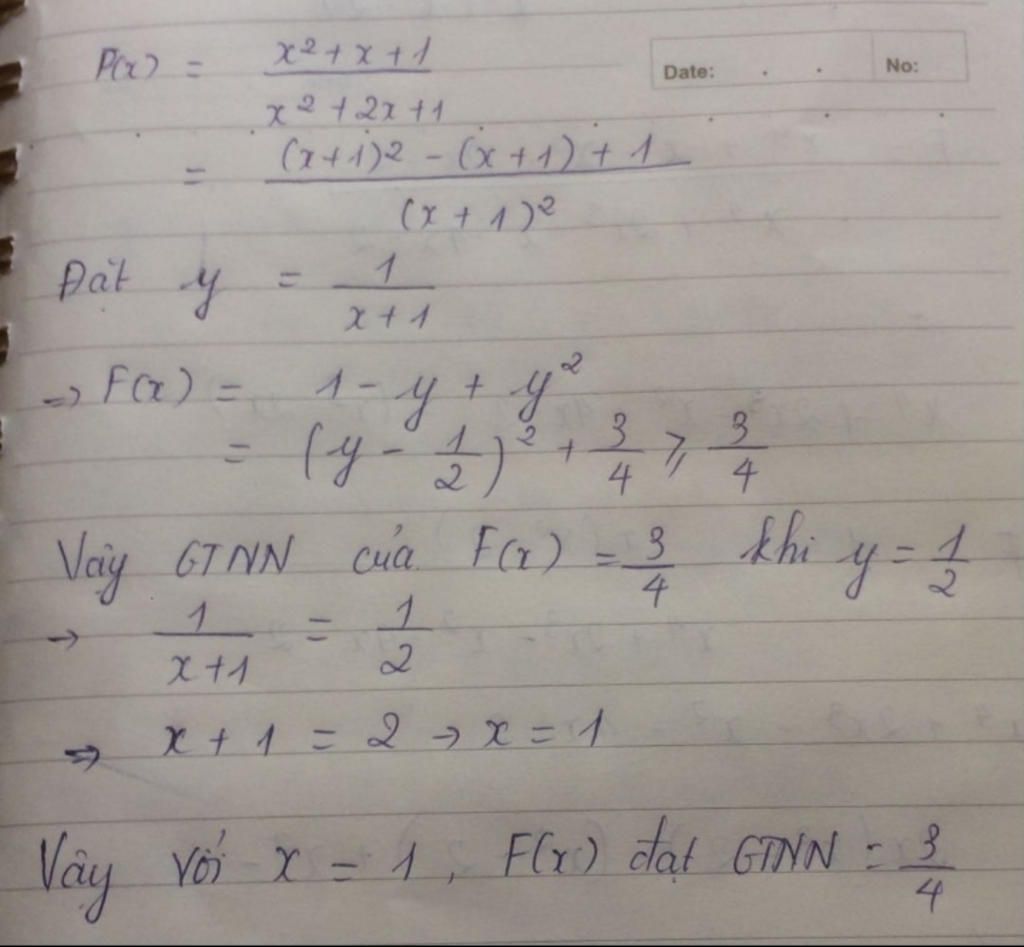 F(x) = \frac{x^2 + x + 1}{x^2 + 2x + 1}
Date: . . No:
= \frac{(x+1)^2 - (x+1) + 1}{(x+1)^2}
Đặt y = \frac{1}{x+1}
=> F(x) = 1 - y + y^2
= (y - \frac{1}{2})^2 + \frac{3}{4} ⩾ \frac{3}{4}
Vậy GTNN của F(x) = \frac{3}{4} khi y = \frac{1}{2}
→ \frac{1}{x+1} = \frac{1}{2}
=> x + 1 = 2 → x = 1
Vậy với x = 1, F(x) đạt GTNN = \frac{3}{4}